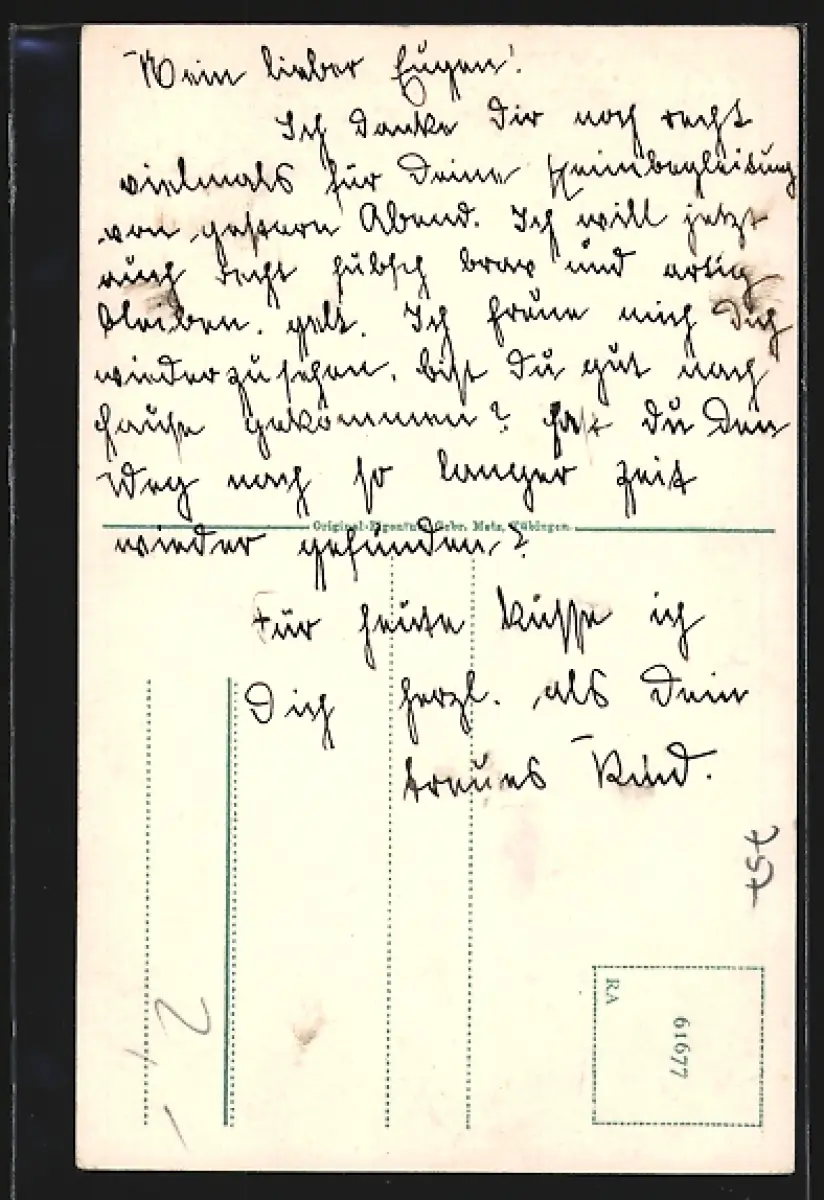 Mein lieber Eugen!
Ich danke Dir noch recht
vielmals für Deine Heimbegleitung
von gestern Abend. Ich will jetzt
auch recht hübsch brav und artig
bleiben, gelt. Ich freue mich Dich
wiederzusehen, bist Du gut nach
Hause gekommen? Hast Du den
Weg nach so langer Zeit
Original-Eigentum Gebr. Metz, Tübingen.
wieder gefunden?
Für heute küsse ich
Dich herzl. als Dein
treues Kind.
RA
61677
2